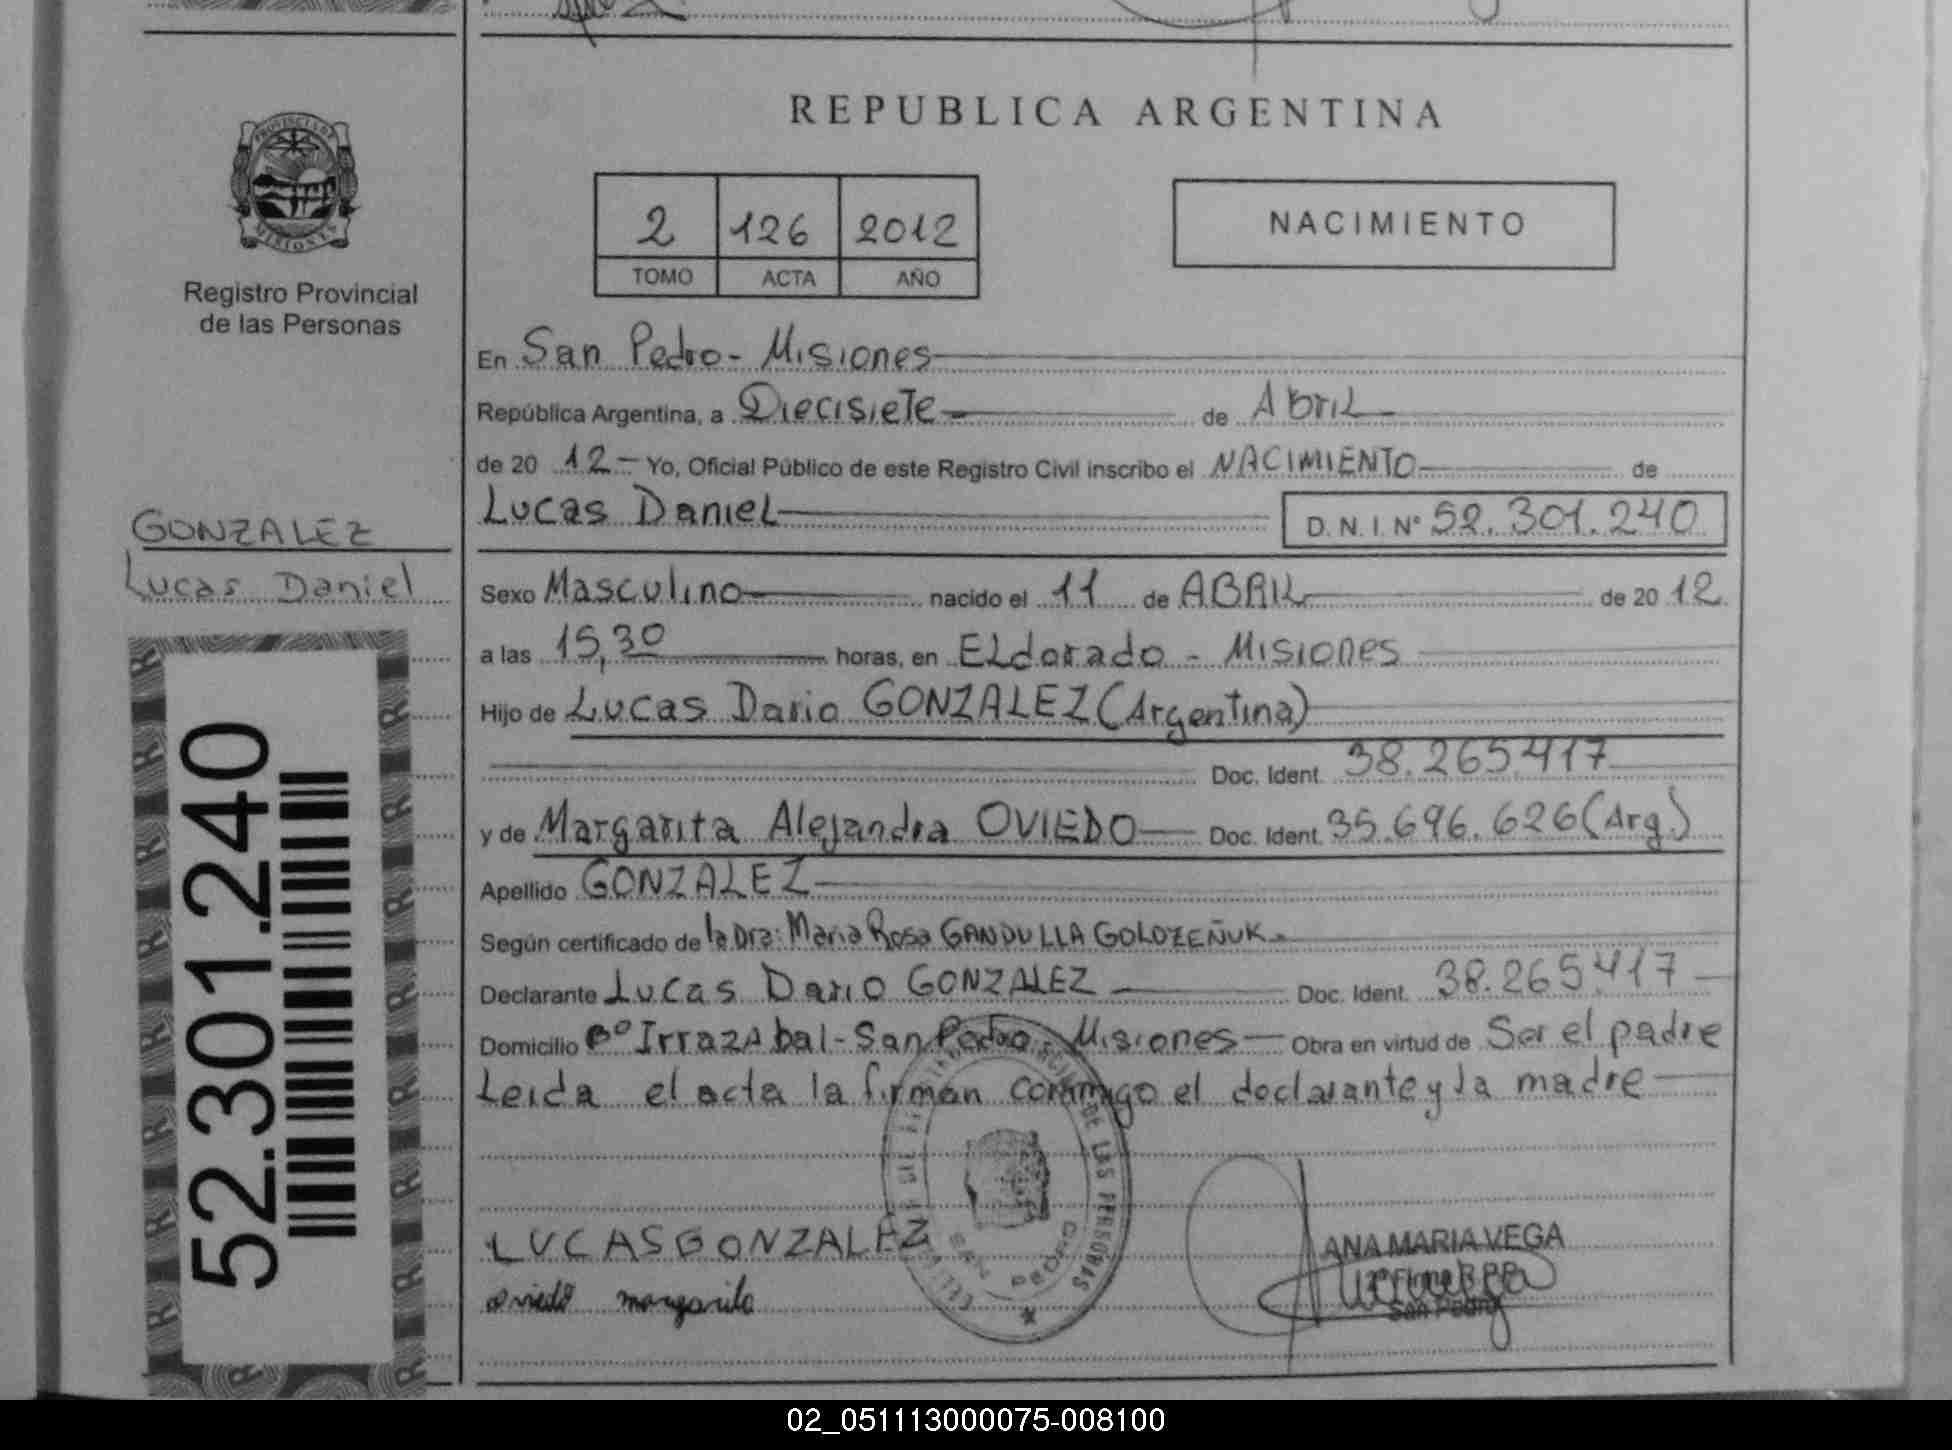 REPUBLICA ARGENTINA
PROVINCIA DE
MISIONES
Registro Provincial
de las Personas
2 126 2012
TOMO ACTA AÑO
NACIMIENTO
En San Pedro - Misiones
República Argentina, a Diecisiete de Abril
de 20 12 - Yo, Oficial Público de este Registro Civil inscribo el NACIMIENTO de
Lucas Daniel D.N.I. Nº 52.301.240
GONZALEZ
Lucas Daniel
52.301.240
Sexo Masculino nacido el 11 de ABRIL de 20 12
a las 15,30 horas, en ELdorado - Misiones
Hijo de Lucas Dario GONZALEZ (Argentina)
Doc. Ident. 38.265.417
y de Margarita Alejandra OVIEDO Doc. Ident. 35.696.626 (Arg.)
Apellido GONZALEZ
Según certificado de la Dra: Maria Rosa GANDULLA GOLOZEÑUK
Declarante Lucas Dario GONZALEZ Doc. Ident. 38.265.417
Domicilio Bº Irrazabal - San Pedro - Misiones Obra en virtud de Ser el padre
Leida el acta la firman conmigo el declarante y la madre
DE LAS PERSONAS
LUCAS GONZALEZ
oviedo margarita
ANA MARIA VEGA
San Pedro
02_051113000075-008100